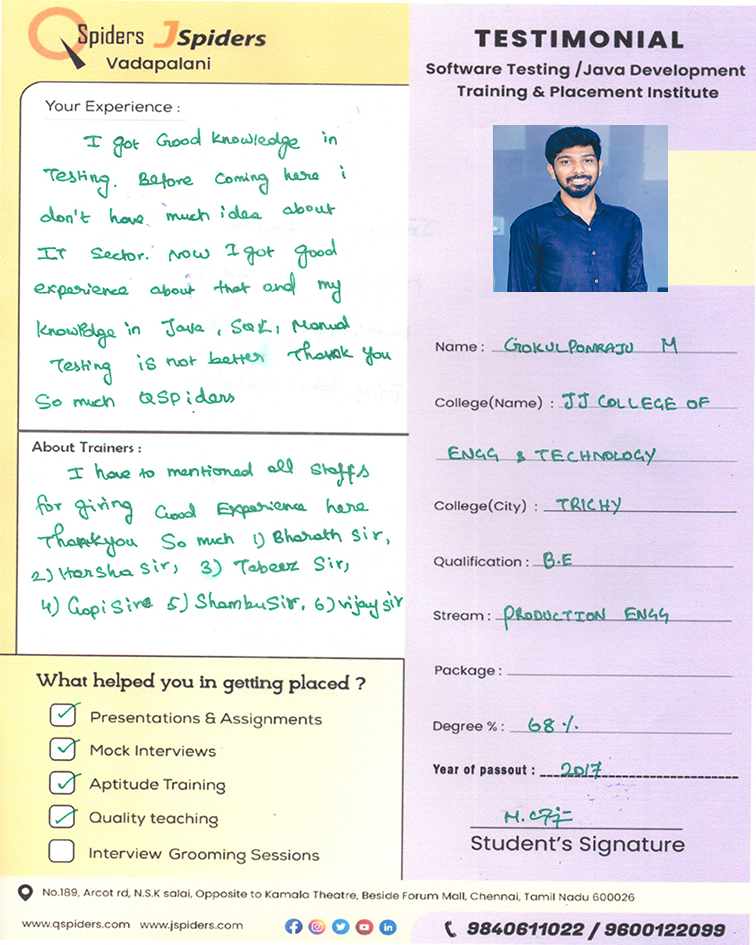 QSpiders JSpiders
Vadapalani
TESTIMONIAL
Software Testing /Java Development
Training & Placement Institute
Your Experience :
I got Good knowledge in
Testing. Before coming here i
don't have much idea about
IT Sector. Now I got good
experience about that and my
knowledge in Java, SQL, Manual
Testing is not better Thank you
So much QSPiders
About Trainers :
I have to mentioned all Staffs
for giving Good Experience here
Thankyou So much 1) Bharath Sir,
2) Harsha Sir, 3) Tabeez Sir,
4) Gopi Sir 5) Shambu Sir, 6) vijay sir
What helped you in getting placed ?
Presentations & Assignments
Mock Interviews
Aptitude Training
Quality teaching
Interview Grooming Sessions
Name : GOKULPONRAJU M
College(Name) : JJ COLLEGE OF
ENGG & TECHNOLOGY
College(City) : TRICHY
Qualification : B.E
Stream : PRODUCTION ENGG
Package :
Degree % : 68 %.
Year of passout : 2017
Student's Signature
No.189, Arcot rd, N.S.K salai, Opposite to Kamala Theatre, Beside Forum Mall, Chennai, Tamil Nadu 600026
www.qspiders.com www.jspiders.com
9840611022 / 9600122099